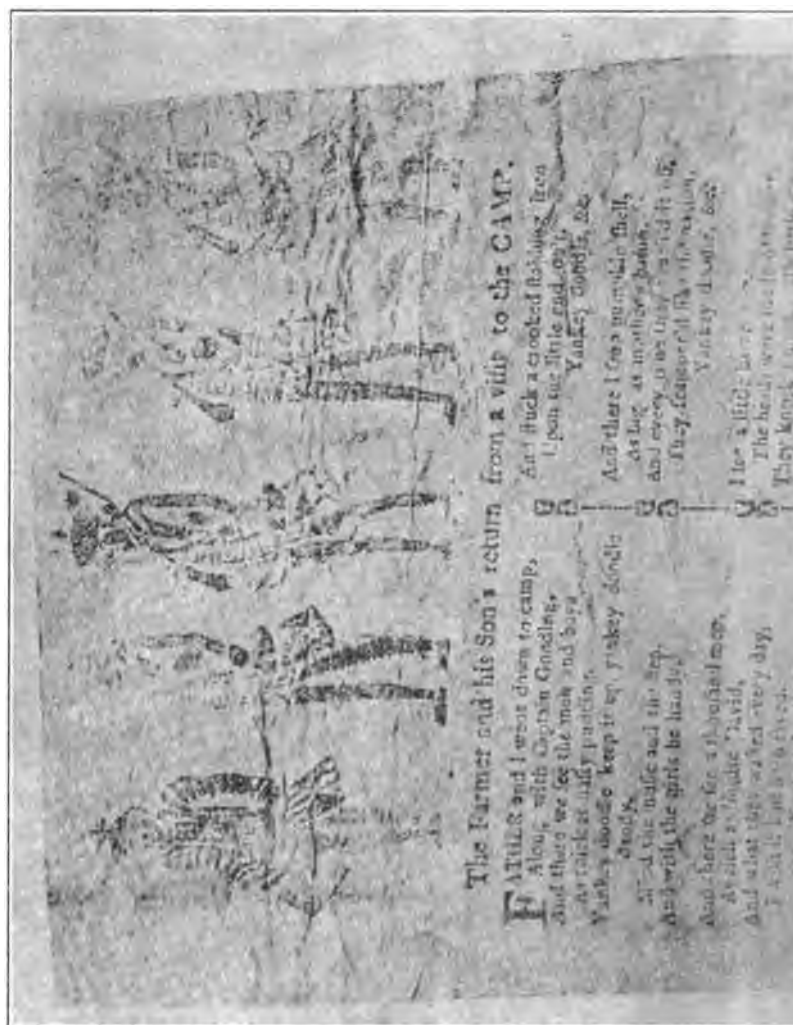 The Farmer and his Son's return from a viſit to the CAMP.
FATHER and I went down to camp,
Along with Captain Gooding,
And there we ſee the men and boys
As thick as haſty pudding.
Yankey doodle keep it up, yankey doodle
dandy,
Mind the muſic and the ſtep,
And with the girls be handy.
And there we ſee a thouſand men,
As rich as 'Squire David,
And what they waſted every day,
I wiſh it
And ſtuck a crooked ſtabbing Iron
Upon the little end on't,
Yankey doodle, &c.
And there I ſee a pumpkin ſhell,
As big as mother's baſon,
And every time they it off,
They ſcamper'd like the nation,
Yankey doodle, &c.
I ſee a little
The heads were
They